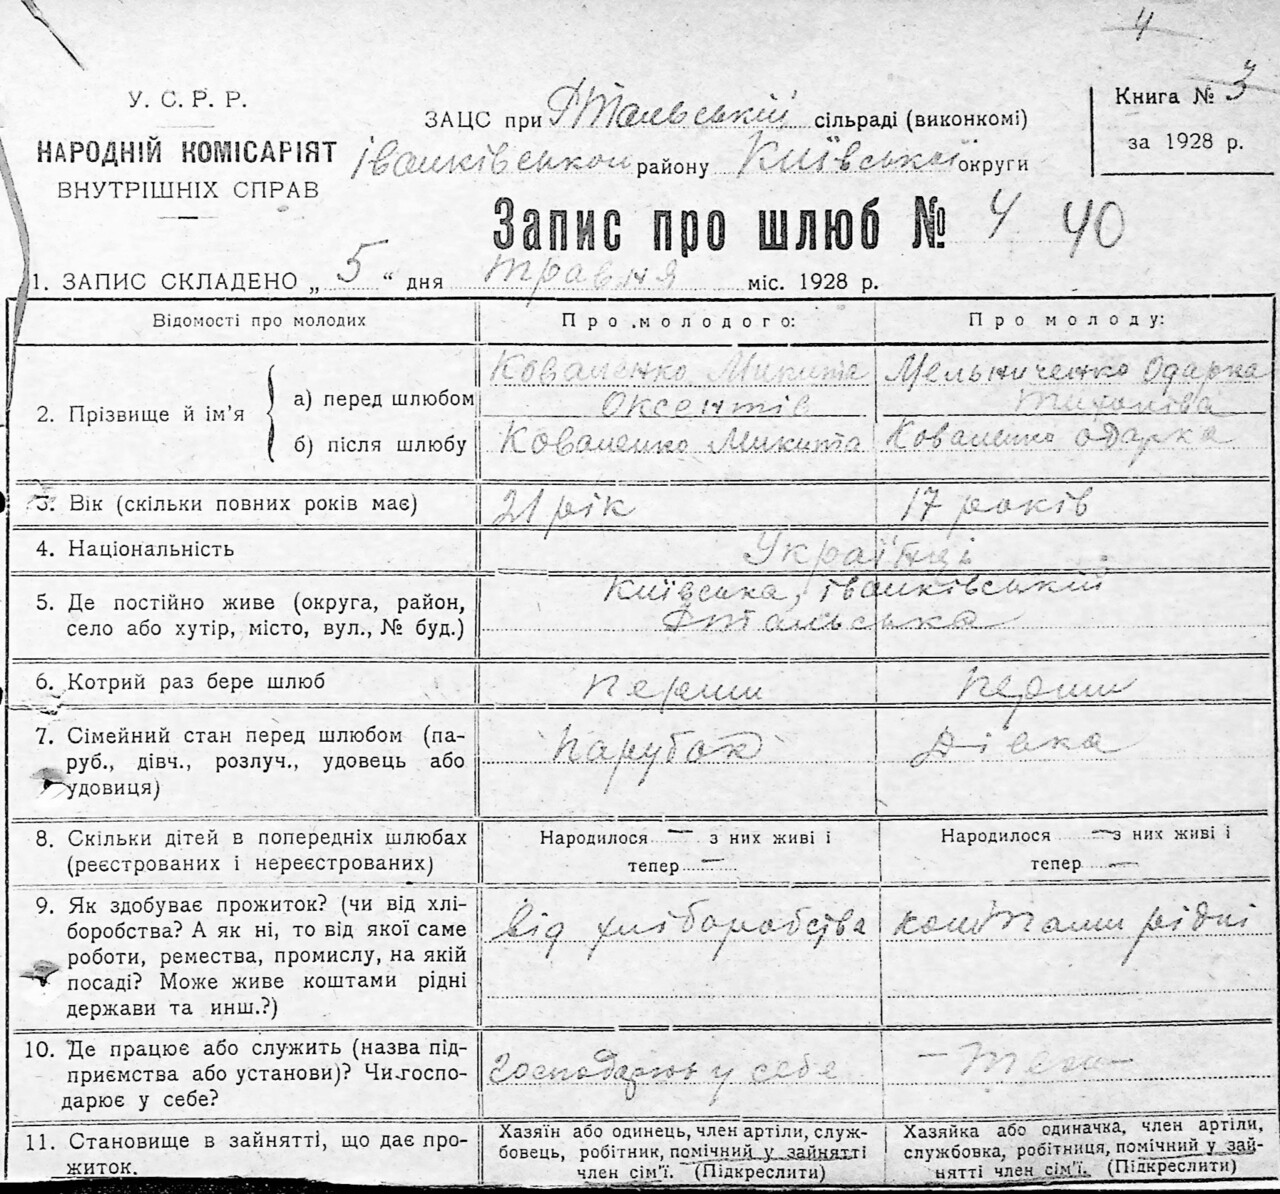 4
У. С. Р. Р.
НАРОДНІЙ КОМІСАРІЯТ
ВНУТРІШНІХ СПРАВ
ЗАЦС при Фтальській сільраді (виконкомі)
Іванківської району Київської округи
Книга № 3
за 1928 р.
Запис про шлюб № 4 40
1. ЗАПИС СКЛАДЕНО „ 5 “ дня травня міс. 1928 р.
Відомості про молодих Про молодого: Про молоду:
2. Прізвище й ім’я
а) перед шлюбом Коваленко Микита Мельниченко Одарка
Оксентів Тихонова
б) після шлюбу Коваленко Микита Коваленко Одарка
3. Вік (скільки повних років має) 21 рік 17 років
4. Національність Українці
5. Де постійно живе (округа, район, Київська, іванківський
село або хутір, місто, вул., № буд.) Фтальська
6. Котрий раз бере шлюб перши перши
7. Сімейний стан перед шлюбом (па-
руб., дівч., розлуч., удовець або парубок Дівка
удовиця)
8. Скільки дітей в попередніх шлюбах Народилося — з них живі і Народилося — з них живі і
(реєстрованих і нереєстрованих) тепер — тепер —
9. Як здобуває прожиток? (чи від хлі-
боробства? А як ні, то від якої саме від хліборобства коштами рідні
роботи, ремества, промислу, на якій
посаді? Може живе коштами рідні
держави та инш.?)
10. Де працює або служить (назва під-
приємства або установи)? Чи госпо- господарює у себе
дарює у себе?
11. Становище в зайнятті, що дає про- Хазяїн або одинець, член артілі, служ- Хазяйка або одиначка, член артіли,
житок. бовець, робітник, помічний у зайнятті службовка, робітниця, помічний у зай-
член сім’ї. (Підкреслити) нятті член сім’ї. (Підкреслити)